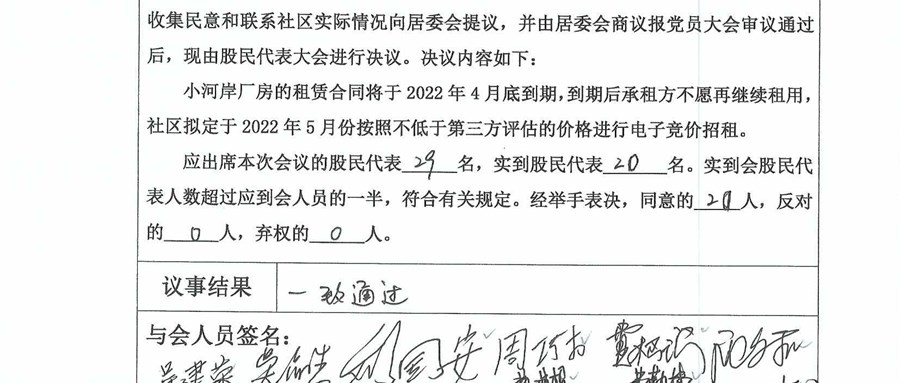 收集民意和联系社区实际情况向居委会提议，并由居委会商议报党员大会审议通过
后，现由股民代表大会进行决议。决议内容如下：
小河岸厂房的租赁合同将于 2022 年 4 月底到期，到期后承租方不愿再继续租用，
社区拟定于 2022 年 5 月份按照不低于第三方评估的价格进行电子竞价招租。
应出席本次会议的股民代表 29 名，实到股民代表 20 名。实到会股民代
表人数超过应到会人员的一半，符合有关规定。经举手表决，同意的 20 人，反对
的 0 人，弃权的 0 人。
议事结果 一致通过
与会人员签名：